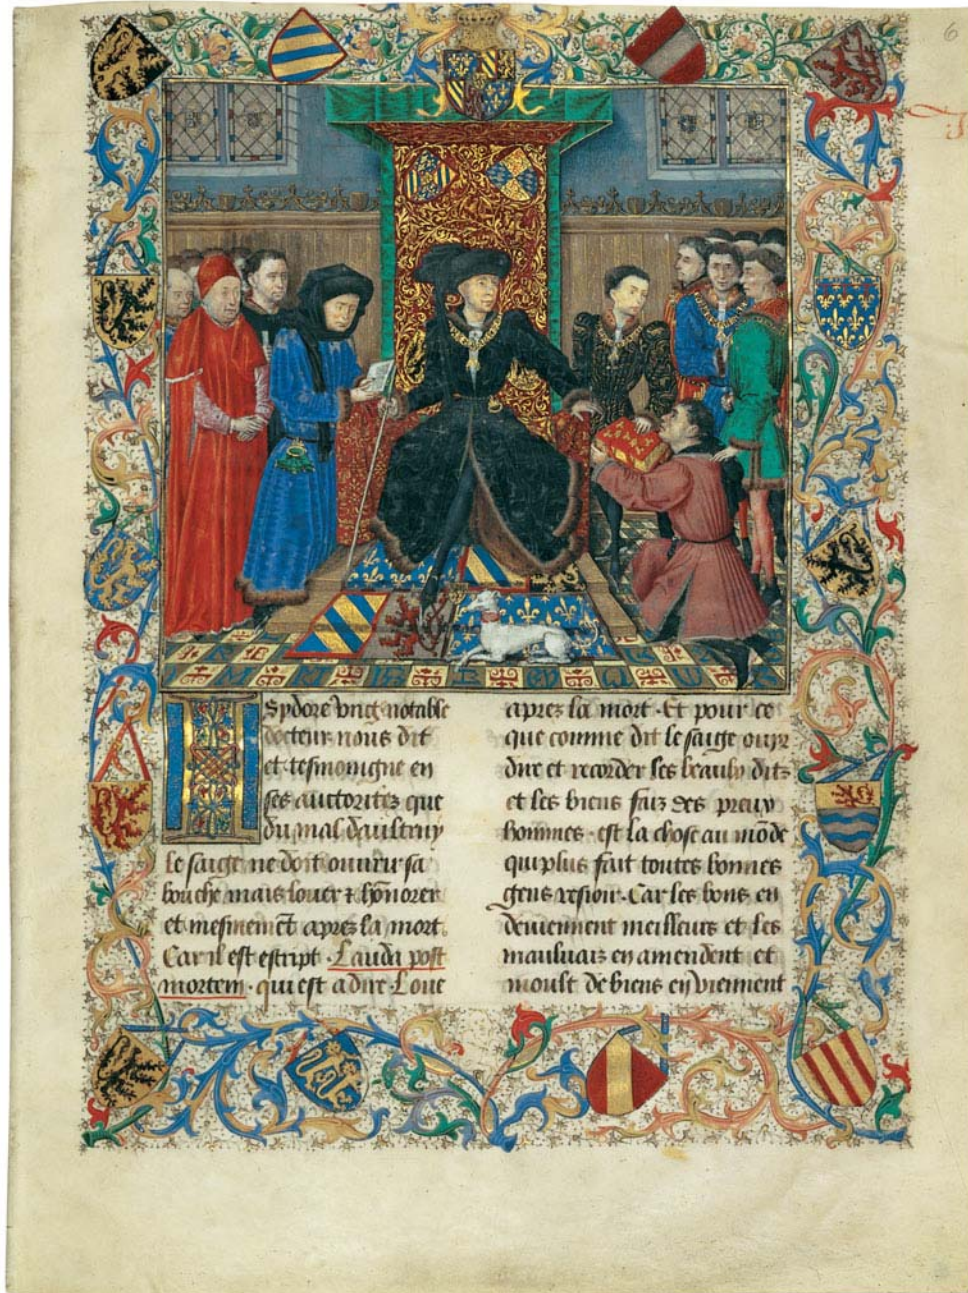 6
Sydore vng notable
docteur nous dit
et tesmoingne en
ses auctoritez que
du mal daultruy
le saige ne doit ouurir sa
bouche mais louer ⁊ hõnorer
et mesmemẽt apres la mort.
Car il est escript . Lauda post
mortem . qui est a dire . Loue
apres la mort . Et pour ce
que comme dit le saige ouyr
dire et recorder les beaulx ditz
et les biens faiz des preux
hommes . est la chose au mõde
qui plus fait toutes bonnes
gens resioir . Car les bons en
deuiennent meilleurs et les
mauluaiz en amendent et
moult de biens en viennent